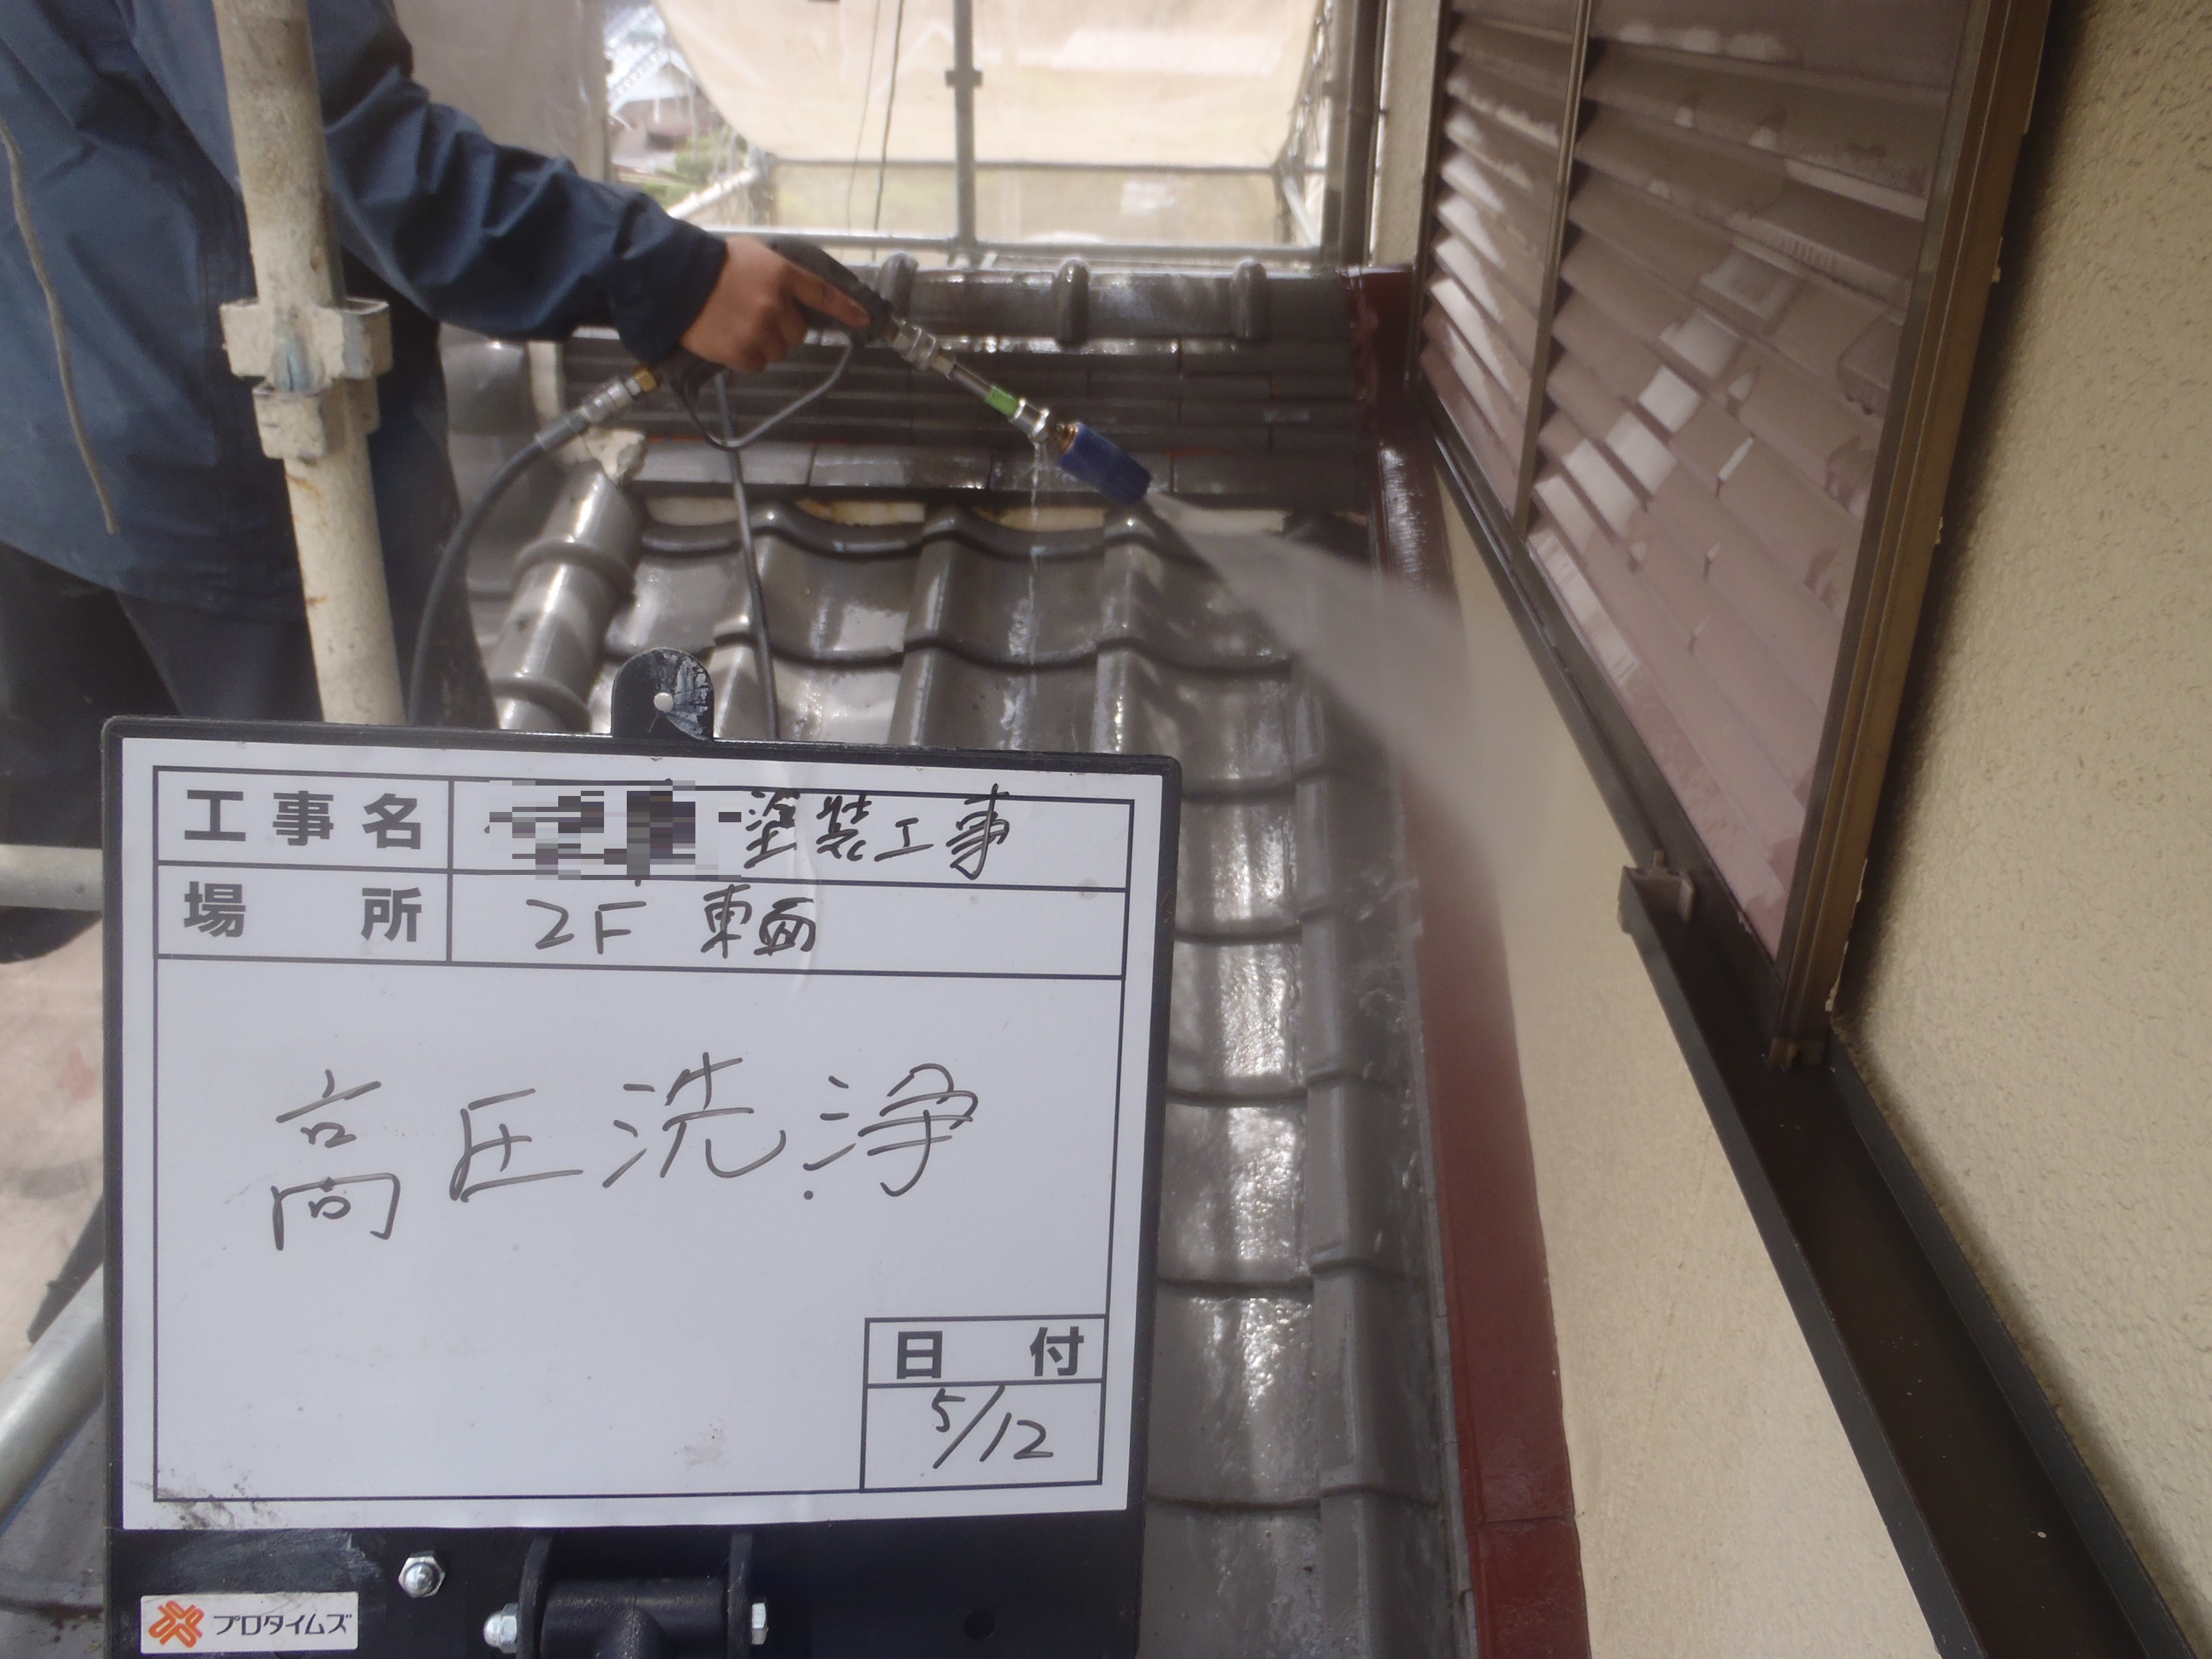 工事名 塗装工事
場所 2F 東面
高圧洗浄
日付
5/12
プロタイムズ